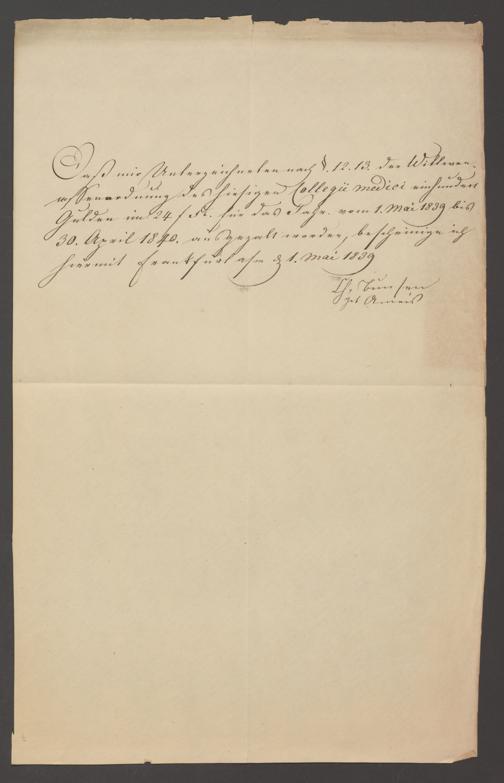 Daß mir Unterzeichneten nach §. 12. 13. der Wittwen-
cassenordnung des hiesigen Collegii medici einhundert
Gulden im 24 f. F. für das Jahr vom 1. Mai 1839 bis
30. April 1840. ausgezalt worden, bescheinige ich
hiermit Frankfurt a/m d 1. Mai 1839
Ch. Bunsen
geb Ameis